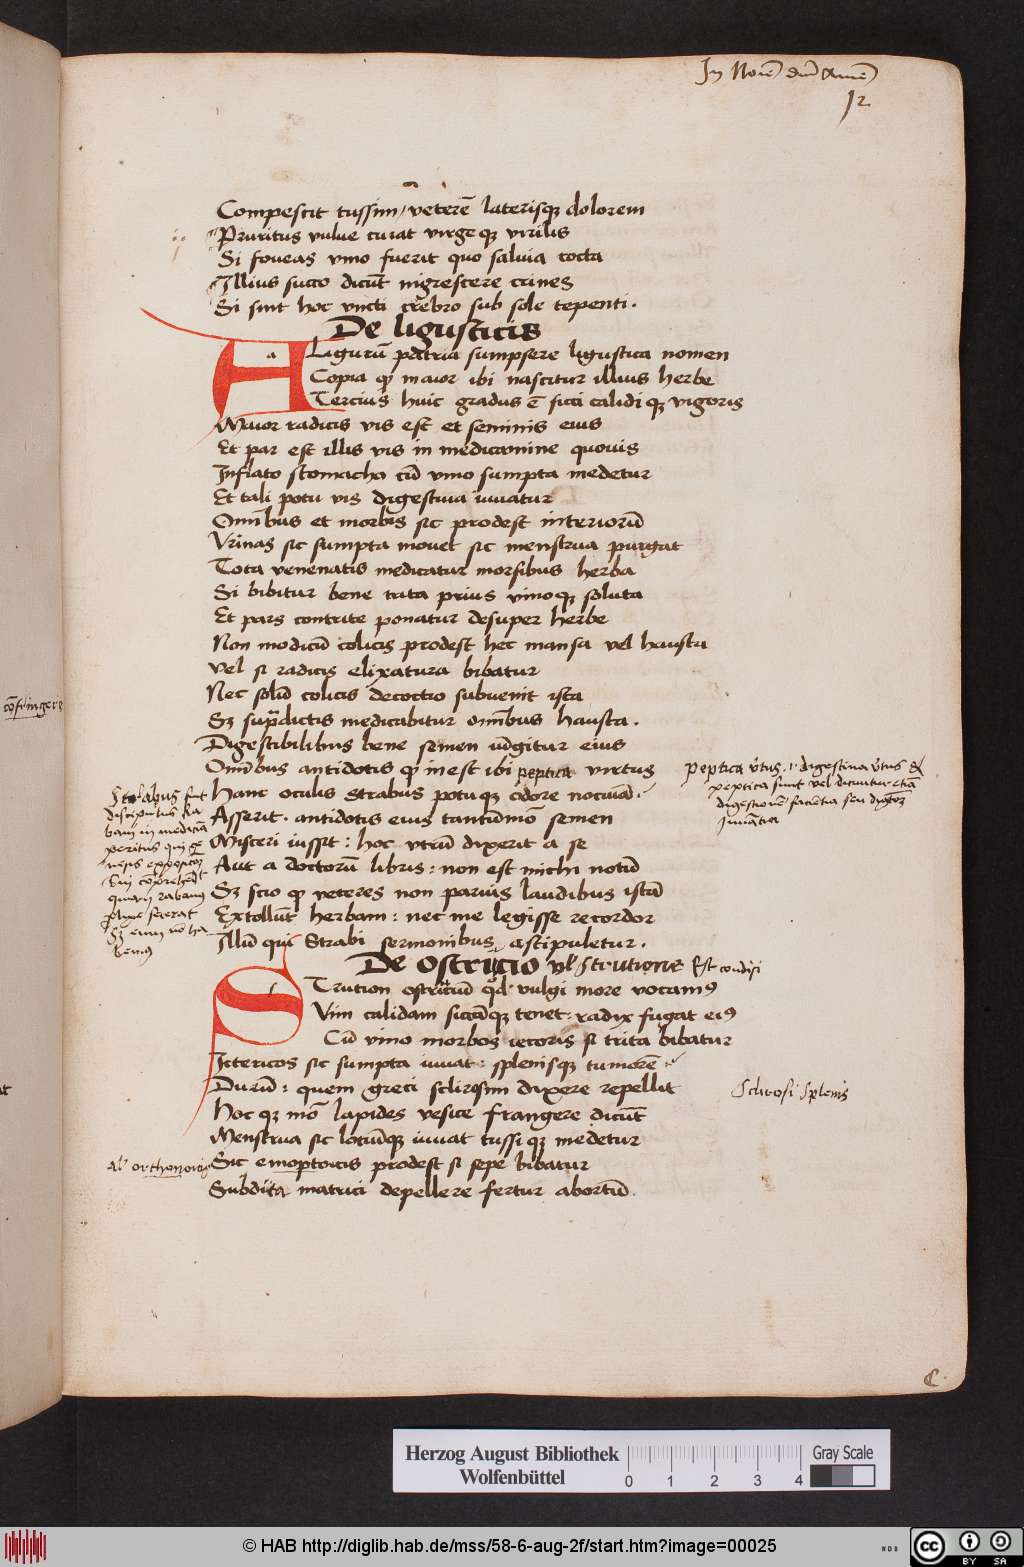 In Noīe dn̄i Amē
12
Compescit tussim / veterē laterisqꝫ dolorem
Pruritus vulue curat virgeqꝫ virilis
Si foueas vino fuerit quo saluia cocta
Illius succo dicūt nigrescere crines
Si sint hoc vncti crebro sub sole tepenti.
De ligusticis
A Ligurū patria sumpsere ligustica nomen
Copia qꝫ maior ibi nascitur illius herbe
Tercius huic gradus ē sicci calidi qꝫ vigoris
Maior radicis vis est et seminis eius
Et par est illis vis in medicamine quouis
Inflato stomacho cū vino sumpta medetur
Et tali potu vis digestiua iuuatur
Omībus et morbis sic prodest interiorū
Vrinas sic sumpta mouet sic menstrua purgat
Tota venenatis medicatur morsibus herba
Si bibitur bene trita prius vinoqꝫ soluta
Et pars contrite ponatur desuper herbe
Non modicū colicis prodest hec mansa vel hausta
Vel si radicis elixatura bibatur
Nec solū colicis decoctio subuenit ista
Sꝫ supradictis medicabitur omībus hausta.
Digestibilibus bene semen iūgitur eius
Omībus antidotis qꝫ inest ibi peptica virtus
Hanc oculis Strabus potuqꝫ odore nociuā
Asserit. antidotis eius tantūmō semen
Misceri iussit: hoc vtrū dixerit a se
Aut a doctorū libris: non est michi notū
Sꝫ scio qꝫ veteres non paruis laudibus istā
Extollūt herbam: nec me legisse recordor
Illū qui Strabi sermonibus astipuletur.
De ostricio vl Strutione
Strution ostriciū qd' vulgi more vocamꝰ
Vim calidam siccāqꝫ tenet: radix fugat eiꝰ
Cū vino morbos iecoris si trita bibatur
Ictericos sic sumpta iuuat: splenisqꝫ tumorē
Durū: quem greci sclirosim dixere repellit
Hoc qꝫ mō lapides vesice frangere dicūt
Menstrua sic lotiūqꝫ iuuat tussi qꝫ medetur
Sic emoptoicis prodest si sepe bibatur
Subdita matrici depellere fertur abortū
cōfringere
Strabus fuit
discipulus
peptica v̄tus .i. digestiua v̄tus
peptica sunt vel dicuntur etiā
digestionē faciētia seu
iuuātia
Sclirosi splenis
al' orthonoicis
C
Herzog August Bibliothek
Wolfenbüttel
0 1 2 3 4
Gray Scale
© HAB http://diglib.hab.de/mss/58-6-aug-2f/start.htm?image=00025
WDB
cc BY SA